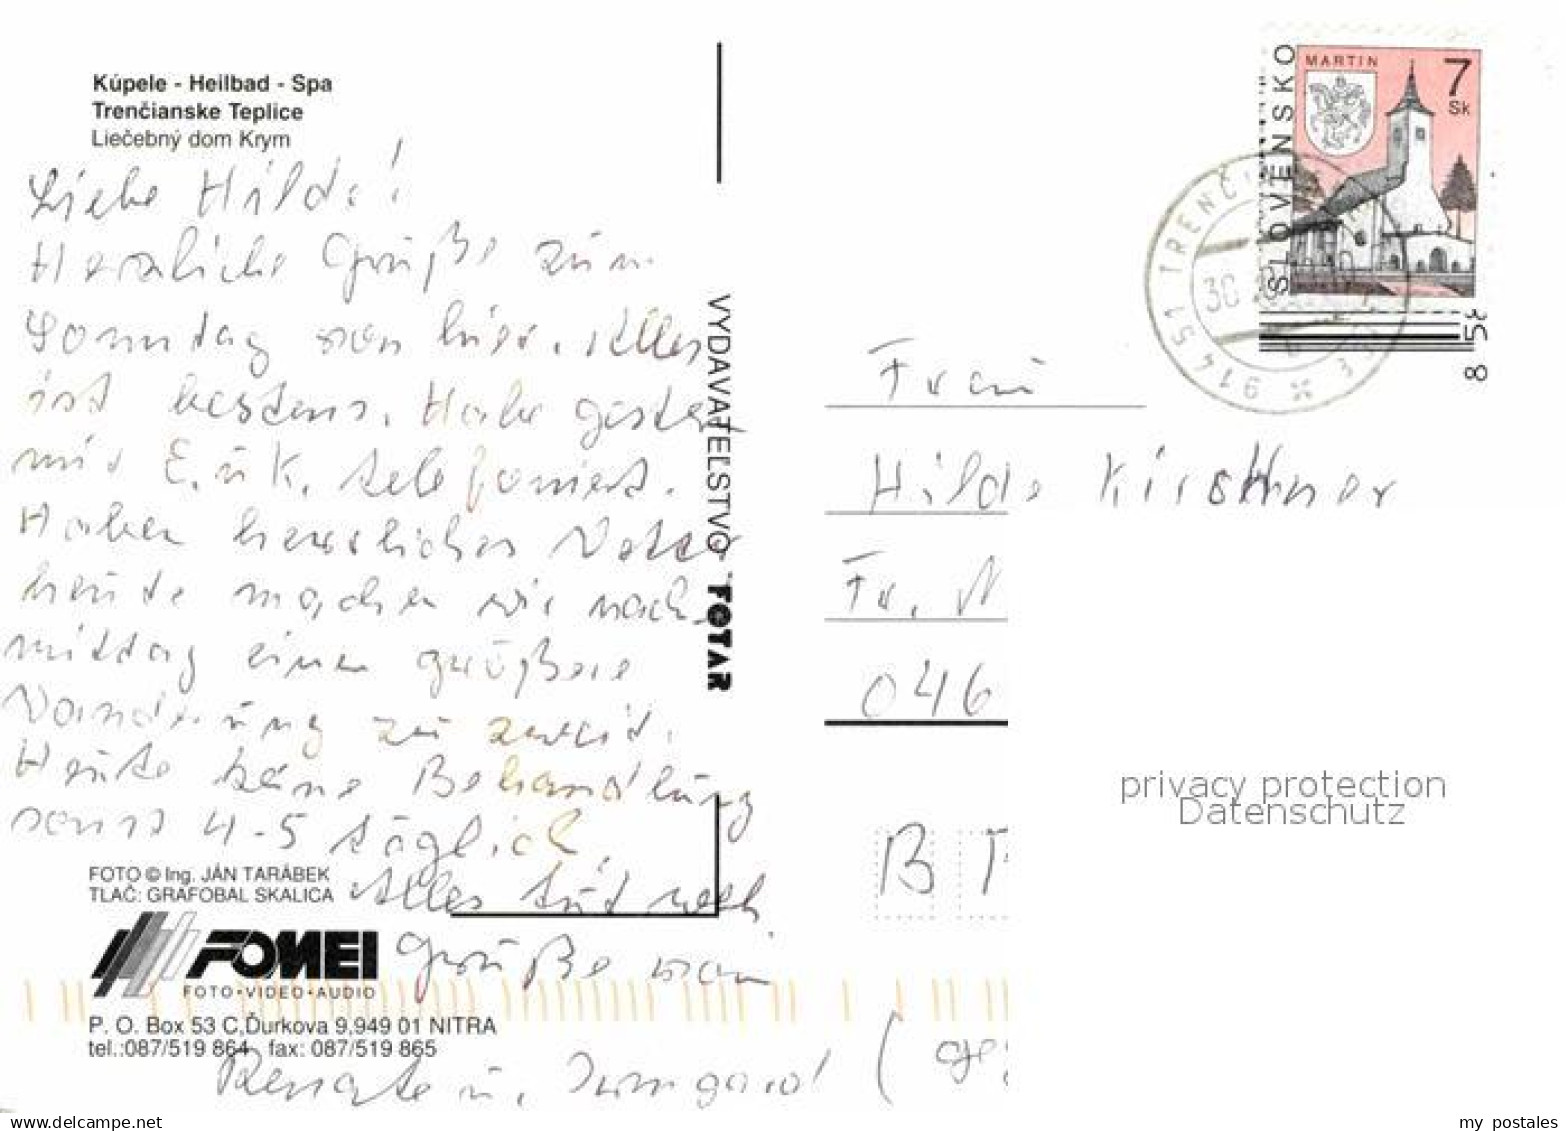 Kúpele - Heilbad - Spa
Trenčianske Teplice
Liečebný dom Krym
Liebe Hilde!
Herzliche Grüße zum
Sonntag von hier. Alles
ist bestens. Habe gestern
mit E. u K. telefoniert.
Haben herrliches Wetter
heute machen wir nach-
mittag einen größere
Wanderung zu zweit.
Heute keine Behandlung
sonst 4-5 täglich.
Alles tut weh.
Grüße von
Renate u. Irmgard (
FOTO © Ing. JÁN TARÁBEK
TLAČ: GRAFOBAL SKALICA
FOMEI
FOTO·VIDEO·AUDIO
P. O. Box 53 C,Ďurkova 9,949 01 NITRA
tel.:087/519 864 fax: 087/519 865
VYDAVATEĽSTVO FOTAR
SLOVENSKO
MARTIN
7
Sk
914 51 TRENČ
30
Frau
Hilde Kirschner
Fr. N
046
B
privacy protection
Datenschutz
www.delcampe.net
my_postales